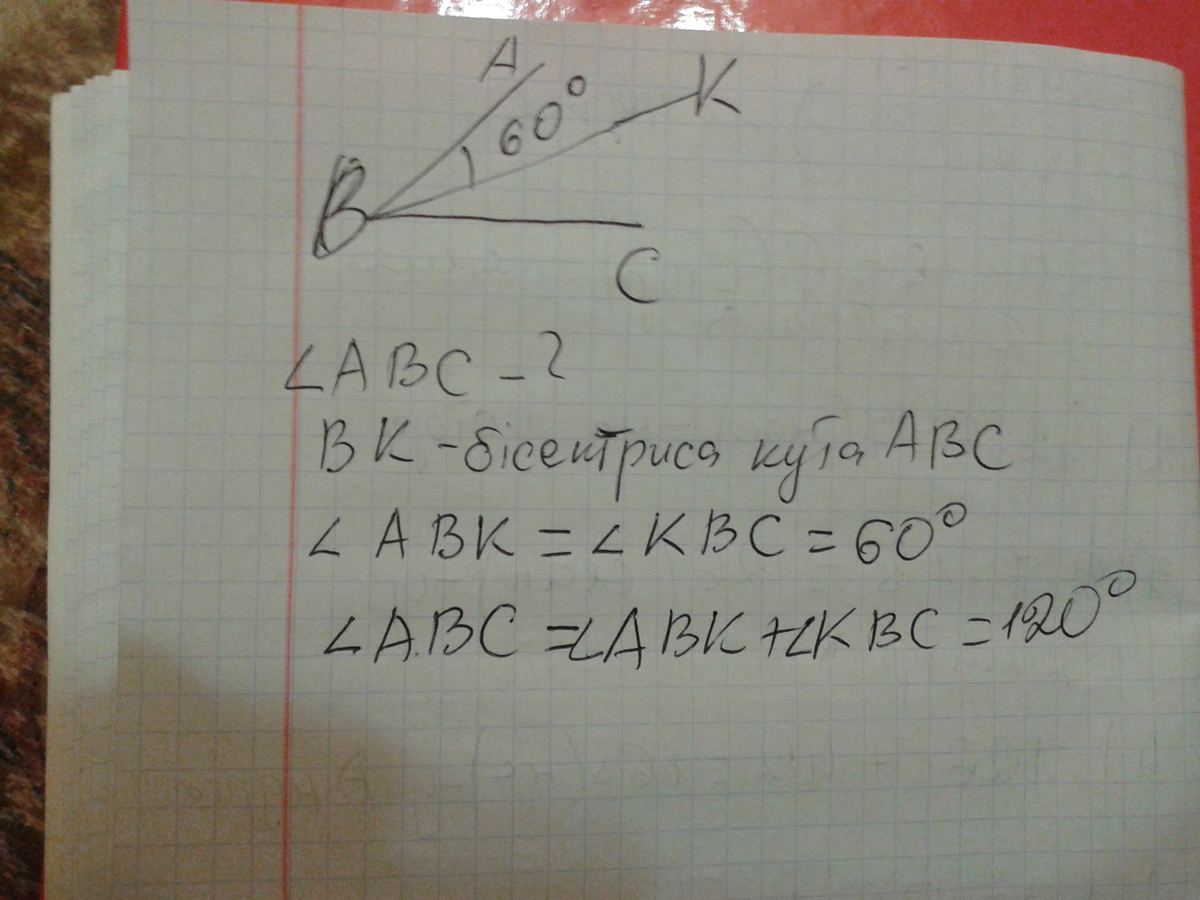 A
K
60°
B
C
∠ABC - ?
BK - бісектриса кута ABC
∠ABK = ∠KBC = 60°
∠ABC = ∠ABK + ∠KBC = 120°